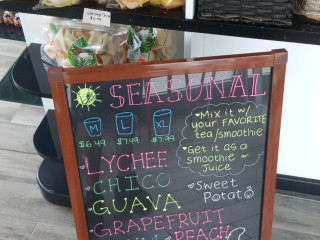 SEASONAL
M L XL
$6.49 $7.49 $7.99
Mix it w/
your FAVORITE
tea/smoothie
Get it as a
smoothie or
Juice
LYCHEE
CHICO
GUAVA
GRAPEFRUIT
Sweet
Potato
PEACH